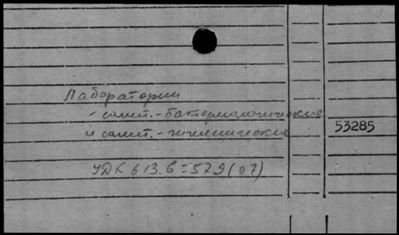 Лаборатории
- санит.-бактериологические
и санит.-гигиенические
53285
УДК 613.6=579(07)